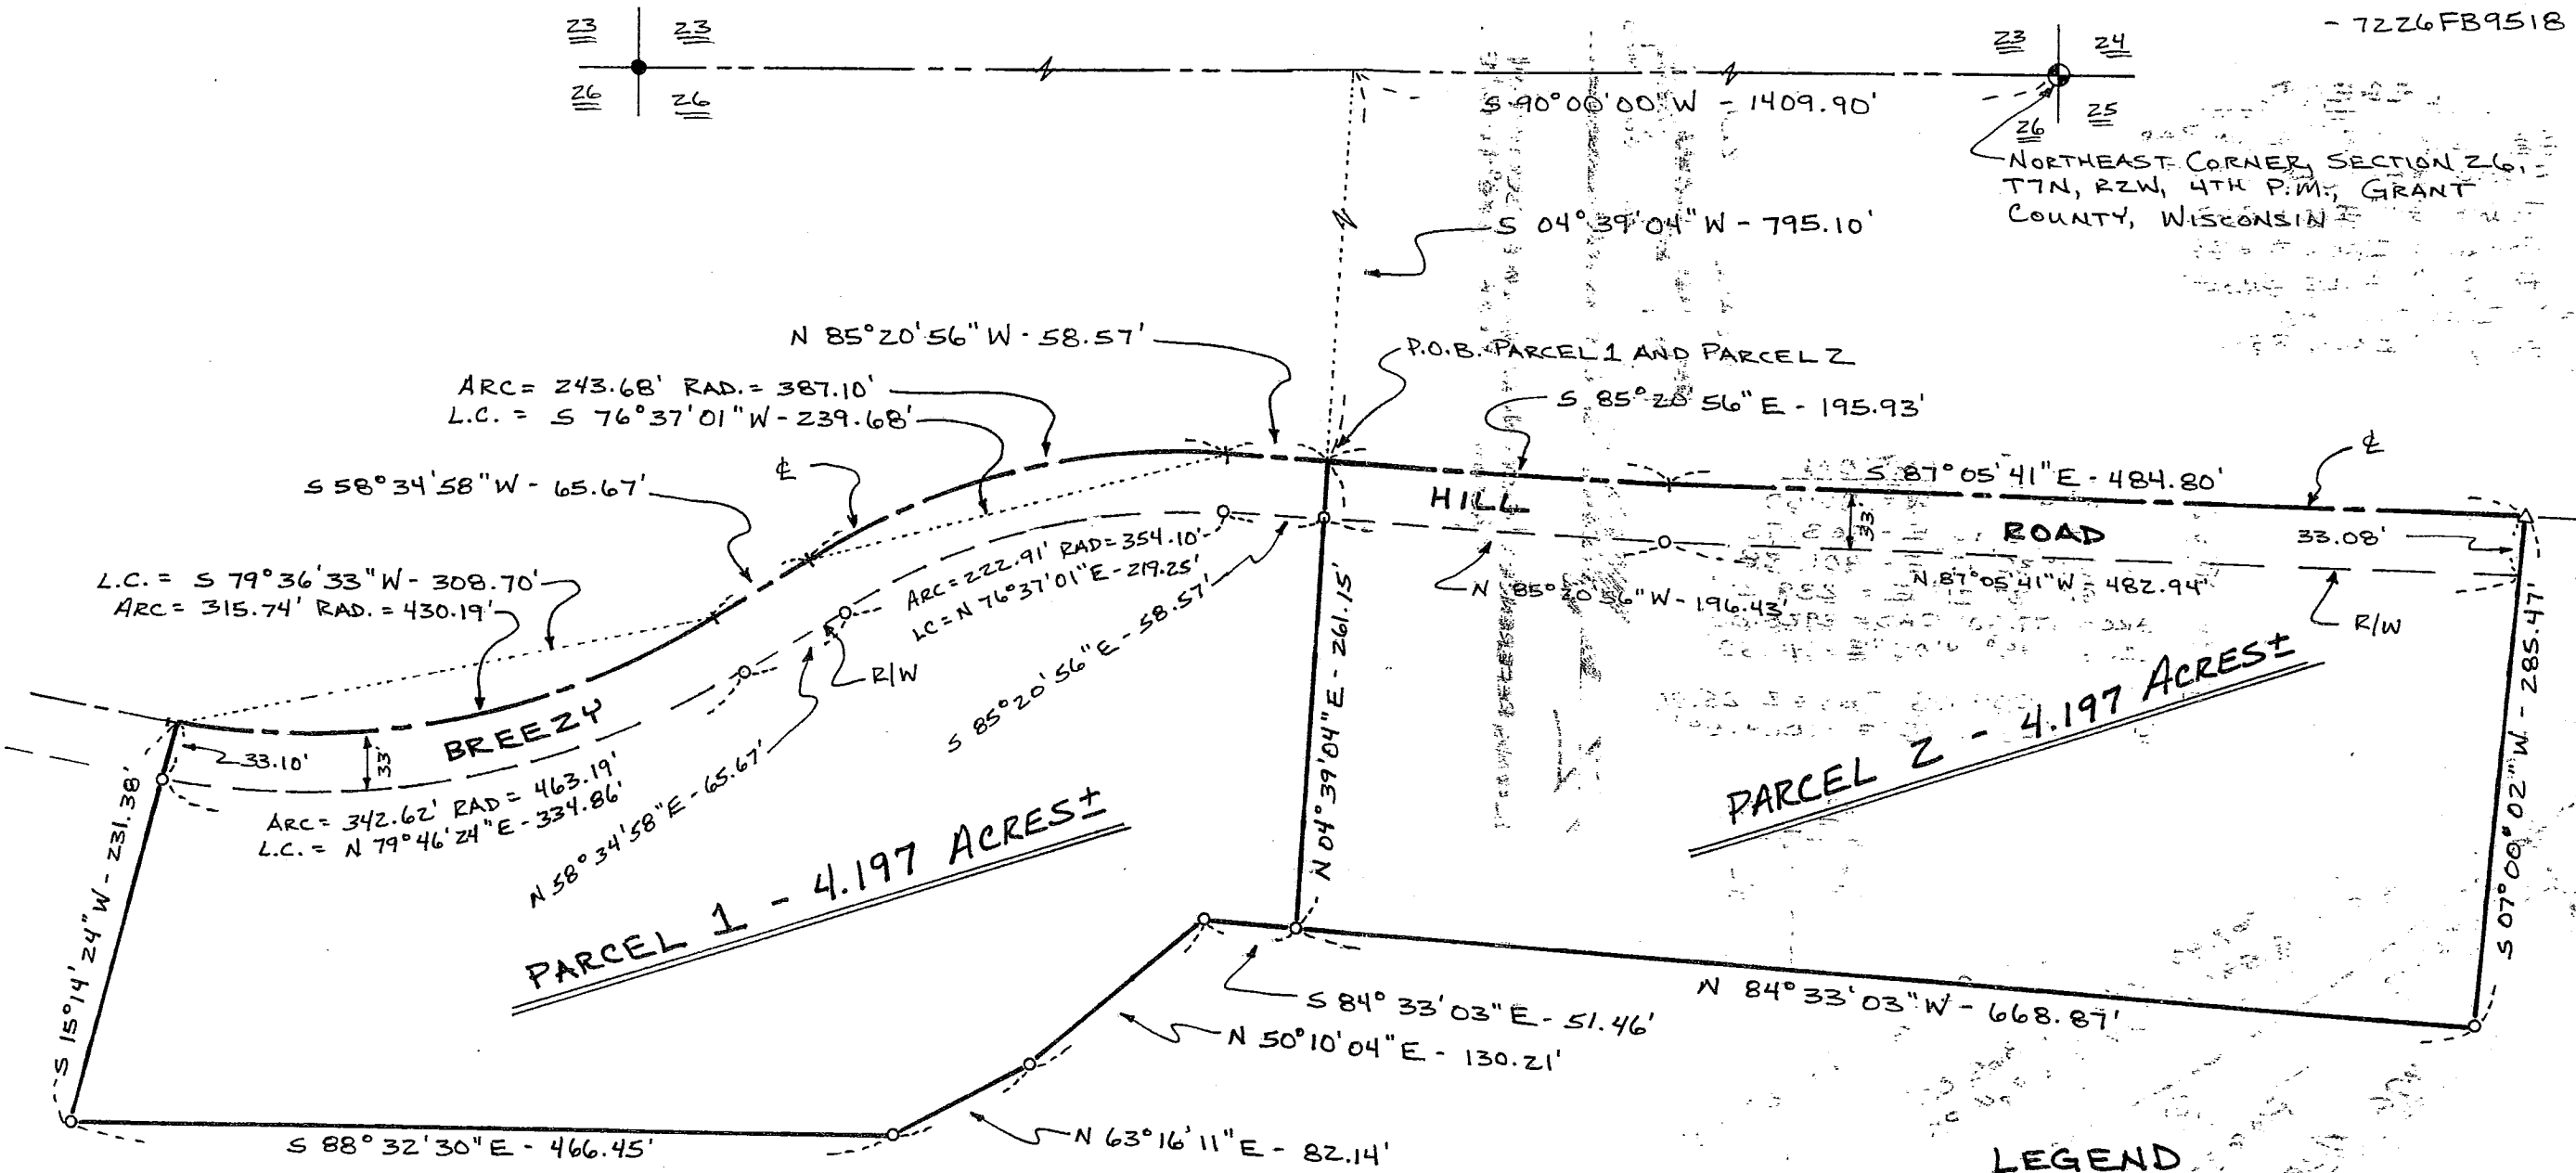 - 7226FB9518
23 23
26 26
23 24
26 25
S 90°00'00" W - 1409.90'
NORTHEAST CORNER, SECTION 26,
T7N, R2W, 4TH P.M., GRANT
COUNTY, WISCONSIN
S 04°39'04" W - 795.10'
N 85°20'56" W - 58.57'
P.O.B. PARCEL 1 AND PARCEL 2
ARC = 243.68' RAD. = 387.10'
L.C. = S 76°37'01" W - 239.68'
S 85°20'56" E - 195.93'
℄
S 58°34'58" W - 65.67'
℄
S 87°05'41" E - 484.80'
HILL
33'
ROAD
33.08'
L.C. = S 79°36'33" W - 308.70'
ARC = 315.74' RAD. = 430.19'
ARC = 222.91' RAD = 354.10'
LC = N 76°37'01" E - 219.25'
N 85°20'56" W - 196.43'
N 87°05'41" W - 482.94'
R/W
R/W
S 85°20'56" E - 58.57'
N 04°39'04" E - 261.15'
S 07°00'02" W - 285.47'
BREEZY
33.10'
33'
ARC = 342.62' RAD = 463.19'
L.C. = N 79°46'24" E - 334.86'
N 58°34'58" E - 65.67'
PARCEL 2 - 4.197 ACRES±
PARCEL 1 - 4.197 ACRES±
S 15°14'24" W - 231.38'
S 84°33'03" E - 51.46'
N 84°33'03" W - 668.87'
N 50°10'04" E - 130.21'
N 63°16'11" E - 82.14'
S 88°32'30" E - 466.45'
LEGEND